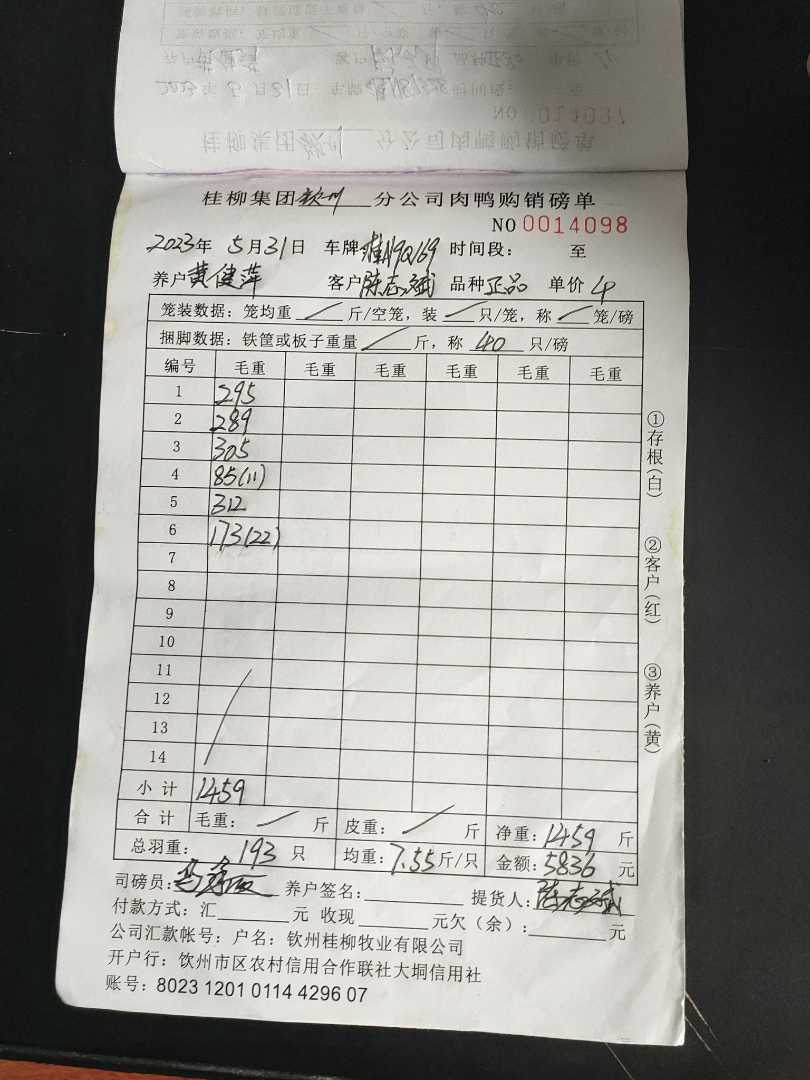 桂柳集团钦州分公司肉鸭购销磅单
NO 0014098
2023年 5月31日 车牌 桂N9Q169 时间段: 至
养户黄健萍 客户陈志斌 品种正品 单价 4
笼装数据: 笼均重 / 斤/空笼, 装 / 只/笼, 称 / 笼/磅
捆脚数据: 铁筐或板子重量 / 斤, 称 40 只/磅
编号 毛重 毛重 毛重 毛重 毛重 毛重
1 295
2 289
3 305
4 85(11)
5 312
6 173(22)
7
8
9
10
11
12
13
14
小计 1459
合计 毛重: / 斤 皮重: / 斤 净重: 1459 斤
总羽重: 193 只 均重: 7.55斤/只 金额: 5836 元
司磅员: 养户签名: 提货人: 陈志斌
付款方式: 汇 元 收现 元欠(余): 元
公司汇款帐号: 户名: 钦州桂柳牧业有限公司
开户行: 钦州市区农村信用合作联社大垌信用社
账号: 8023 1201 0114 4296 07
①存根(白)
②客户(红)
③养户(黄)